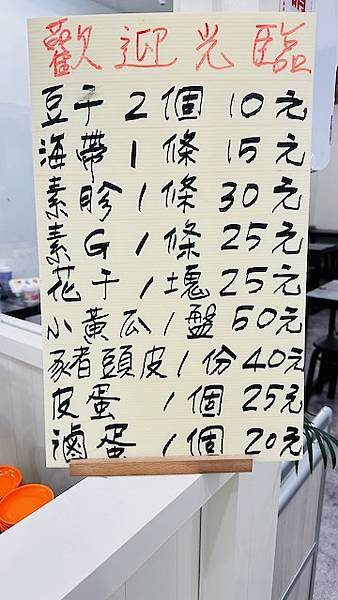 歡迎光臨
豆干2個10元
海帶1條15元
素肣1條30元
素G1條25元
花干1塊25元
小黃瓜1盤50元
豬頭皮1份40元
皮蛋 1個25元
滷蛋 1個20元